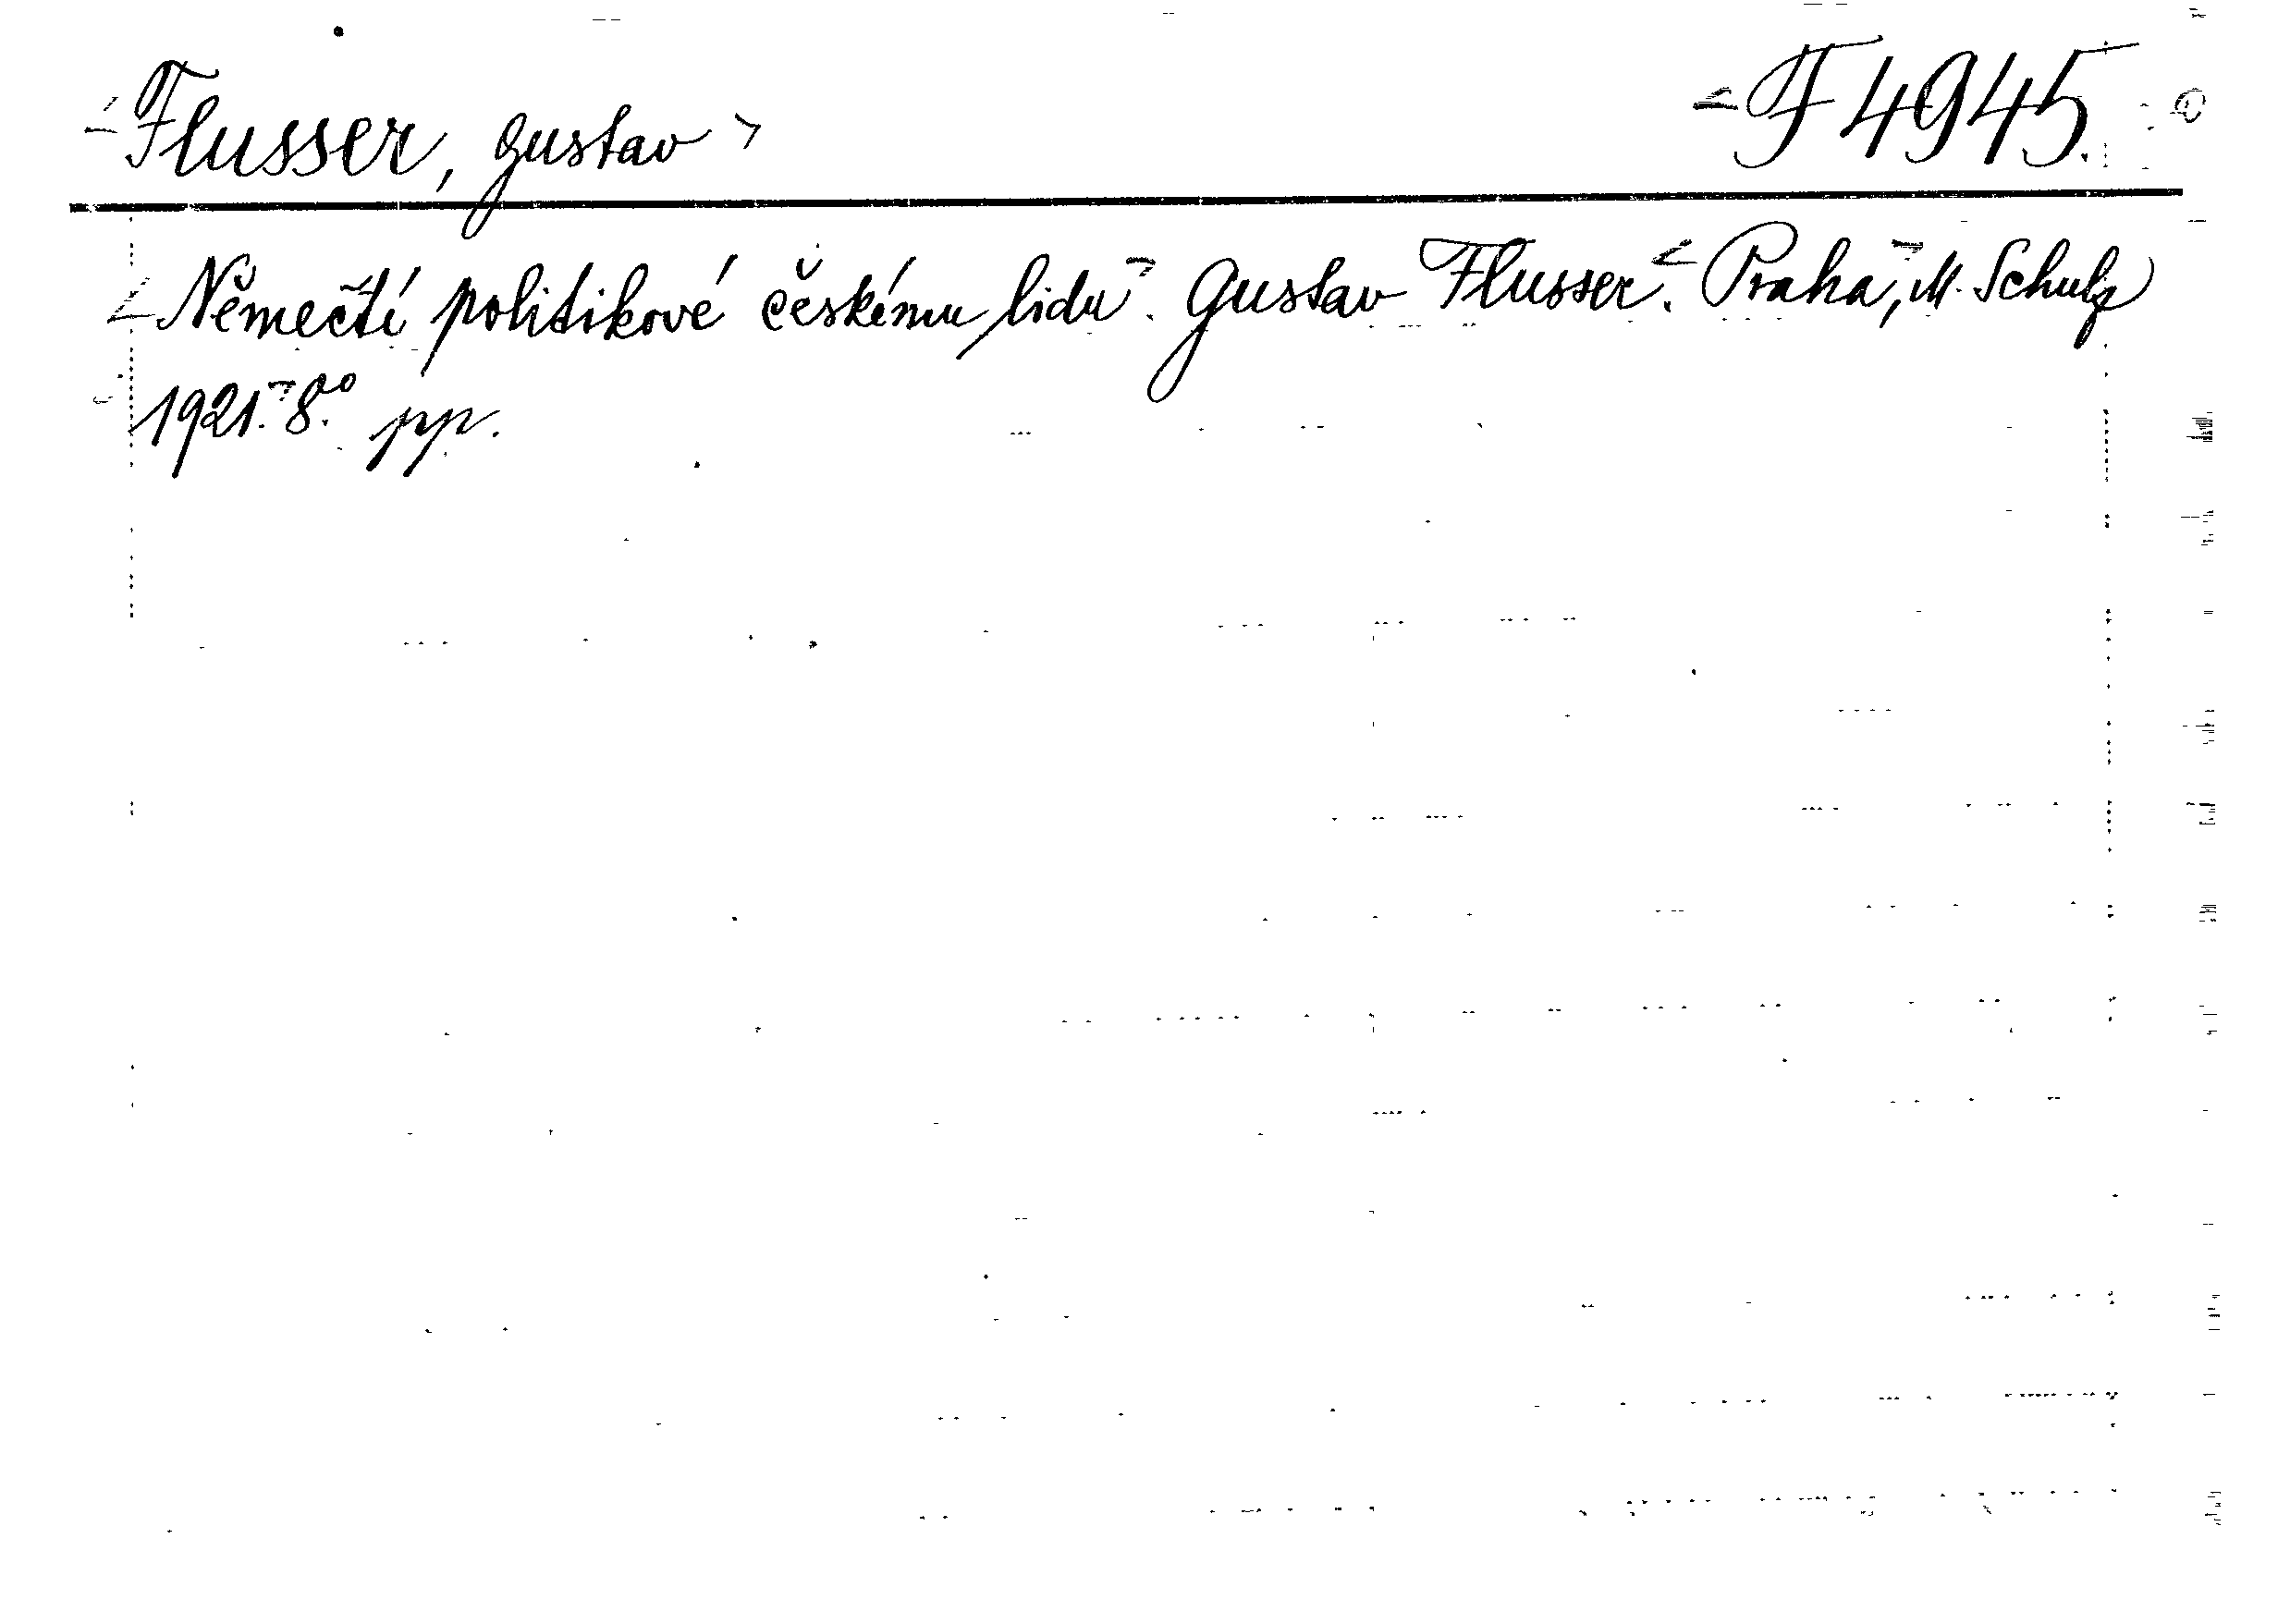 Flusser, Gustav
F 4945.
Němečtí politikové českému lidu. Gustav Flusser. Praha, M. Schulz
1921. 8.° pp.